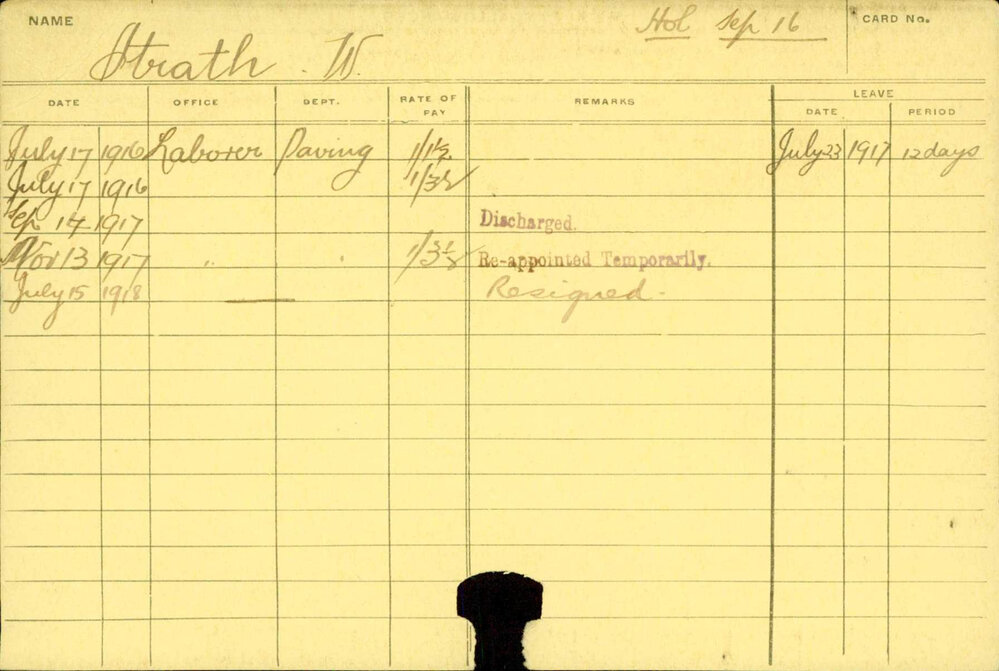 NAME Strath. W. Hol Sep 16 CARD No.
LEAVE
DATE OFFICE DEPT. RATE OF PAY REMARKS DATE PERIOD
July 17 1916 Laborer Paving 1/1½ July 23 1917 12 days
July 17 1916 1/3½
Sep 14 1917 Discharged.
Nov 13 1917 " " 1/3½ Re-appointed Temporarily.
July 15 1918 Resigned.